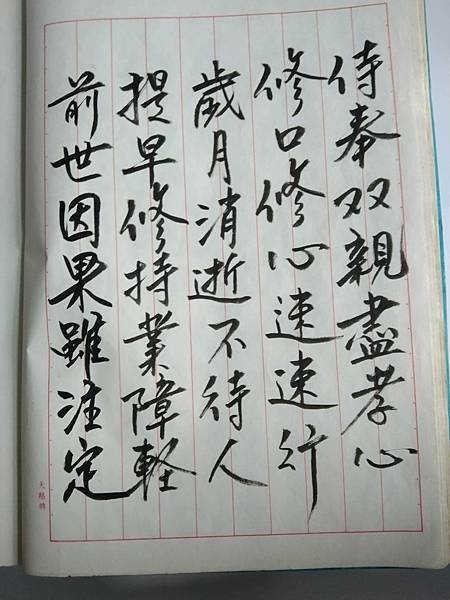 侍奉双親盡孝心
修口修心速速行
歲月消逝不待人
提早修持業障軽
前世因果雖注定